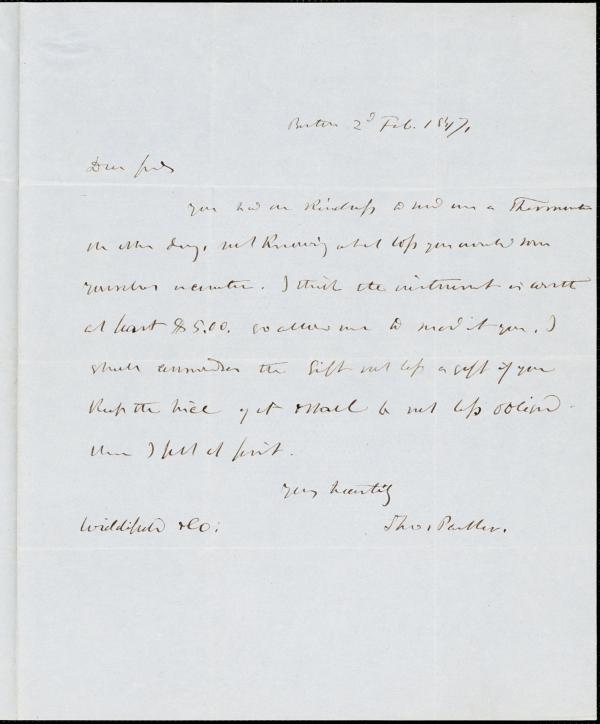 Boston 2d Feb. 1847,
Dear Sirs
you had the kindness to send me a Thermometer
the other day, not knowing what loss you would
yourselves encounter. I think the instrument is worth
at least $5.00. so allow me to send it you. I
shall consider the Gift not less a gift if you
keep the price & shall be not less obliged
than I felt at first.
Yours heartily
Widdifield & Co: Theo. Parker.